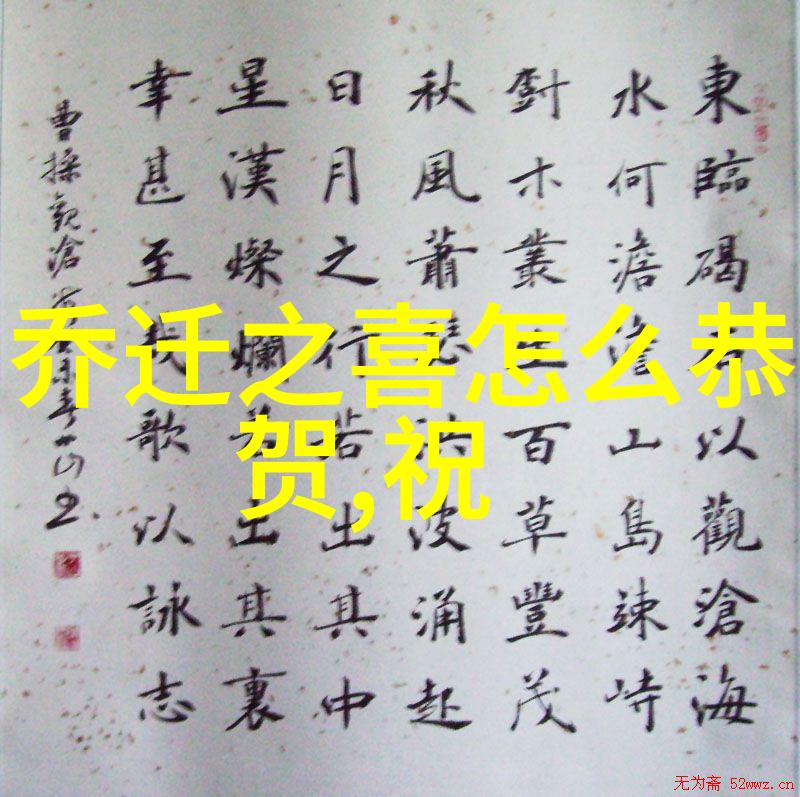 乔迁之喜怎么恭
贺,祝
東臨碣石以觀滄海
水何澹澹山島竦峙
尌木叢生百草豐茂
秋風蕭瑟洪波涌起
日月之行若出其中
星漢燦爛若出其裏
幸甚至哉歌以詠志
曹操觀滄海
无为斋 52wwz.cn